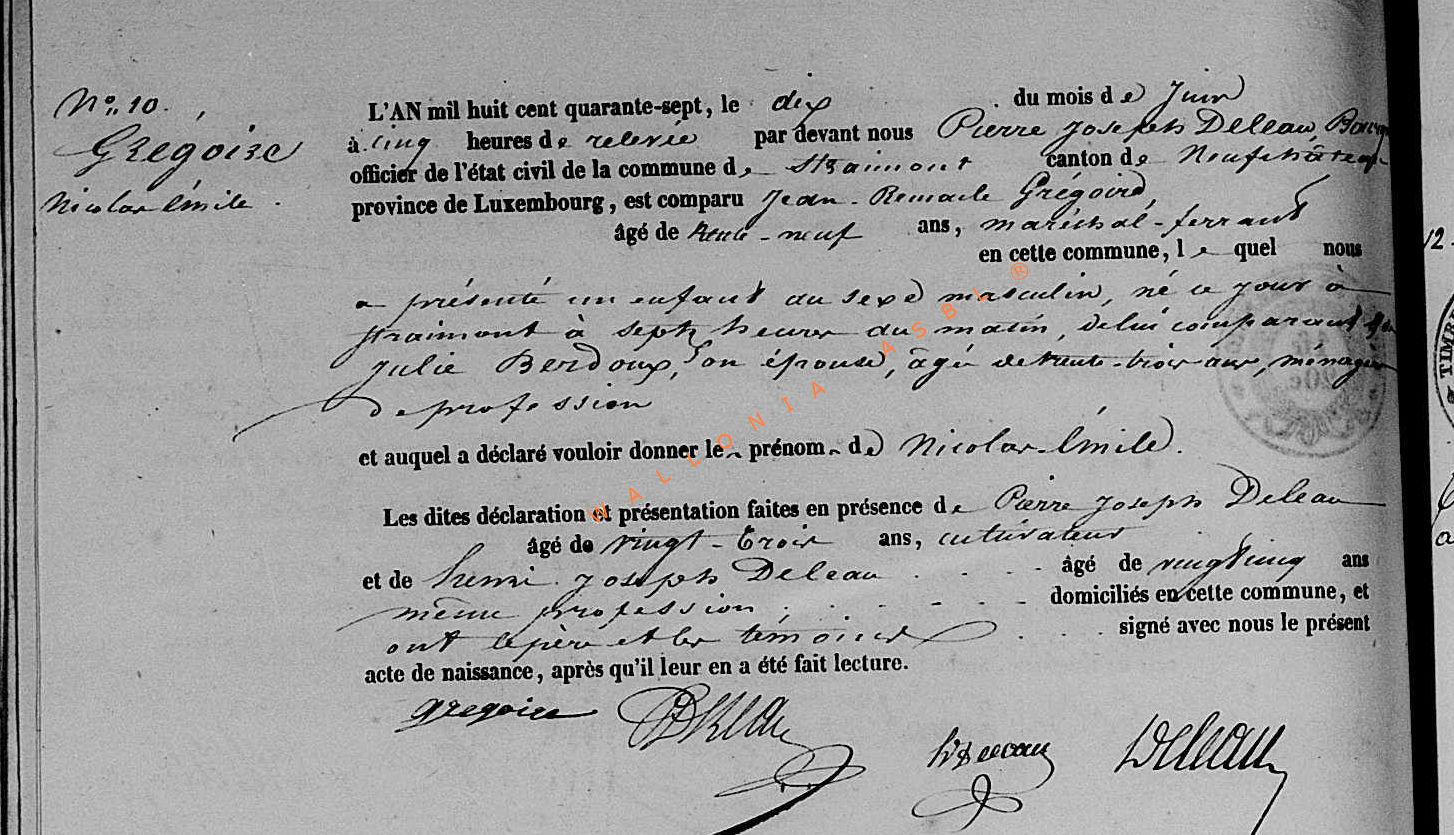 N°. 10.
Grégoire
Nicolas émile.
L'AN mil huit cent quarante-sept, le dix du mois de Juin
à cinq heures de relevée par devant nous Pierre Joseph Deleau, Bourg
officier de l'état civil de la commune de Straimont canton de Neufchâteau
province de Luxembourg, est comparu Jean-Remacle Grégoire,
âgé de trente-neuf ans, maréchal-ferrant
en cette commune, le quel nous
a présenté un enfant du sexe masculin, né ce jour à
straimont à sept heures du matin, de lui comparant &
Julie Berdoux, son épouse, âgée de trente-trois ans, ménagère
de profession
et auquel a déclaré vouloir donner le prénom de Nicolas-émile.
Les dites déclaration et présentation faites en présence de Pierre Joseph Deleau
âgé de vingt-trois ans, cultivateur
et de henri Joseph Deleau âgé de vingt cinq ans
même profession, domiciliés en cette commune, et
ont le père et les témoins signé avec nous le présent
acte de naissance, après qu'il leur en a été fait lecture.
gregoire Deleau hJDeleau Deleau
WALLONIA ASBL ®
12
TIM
a